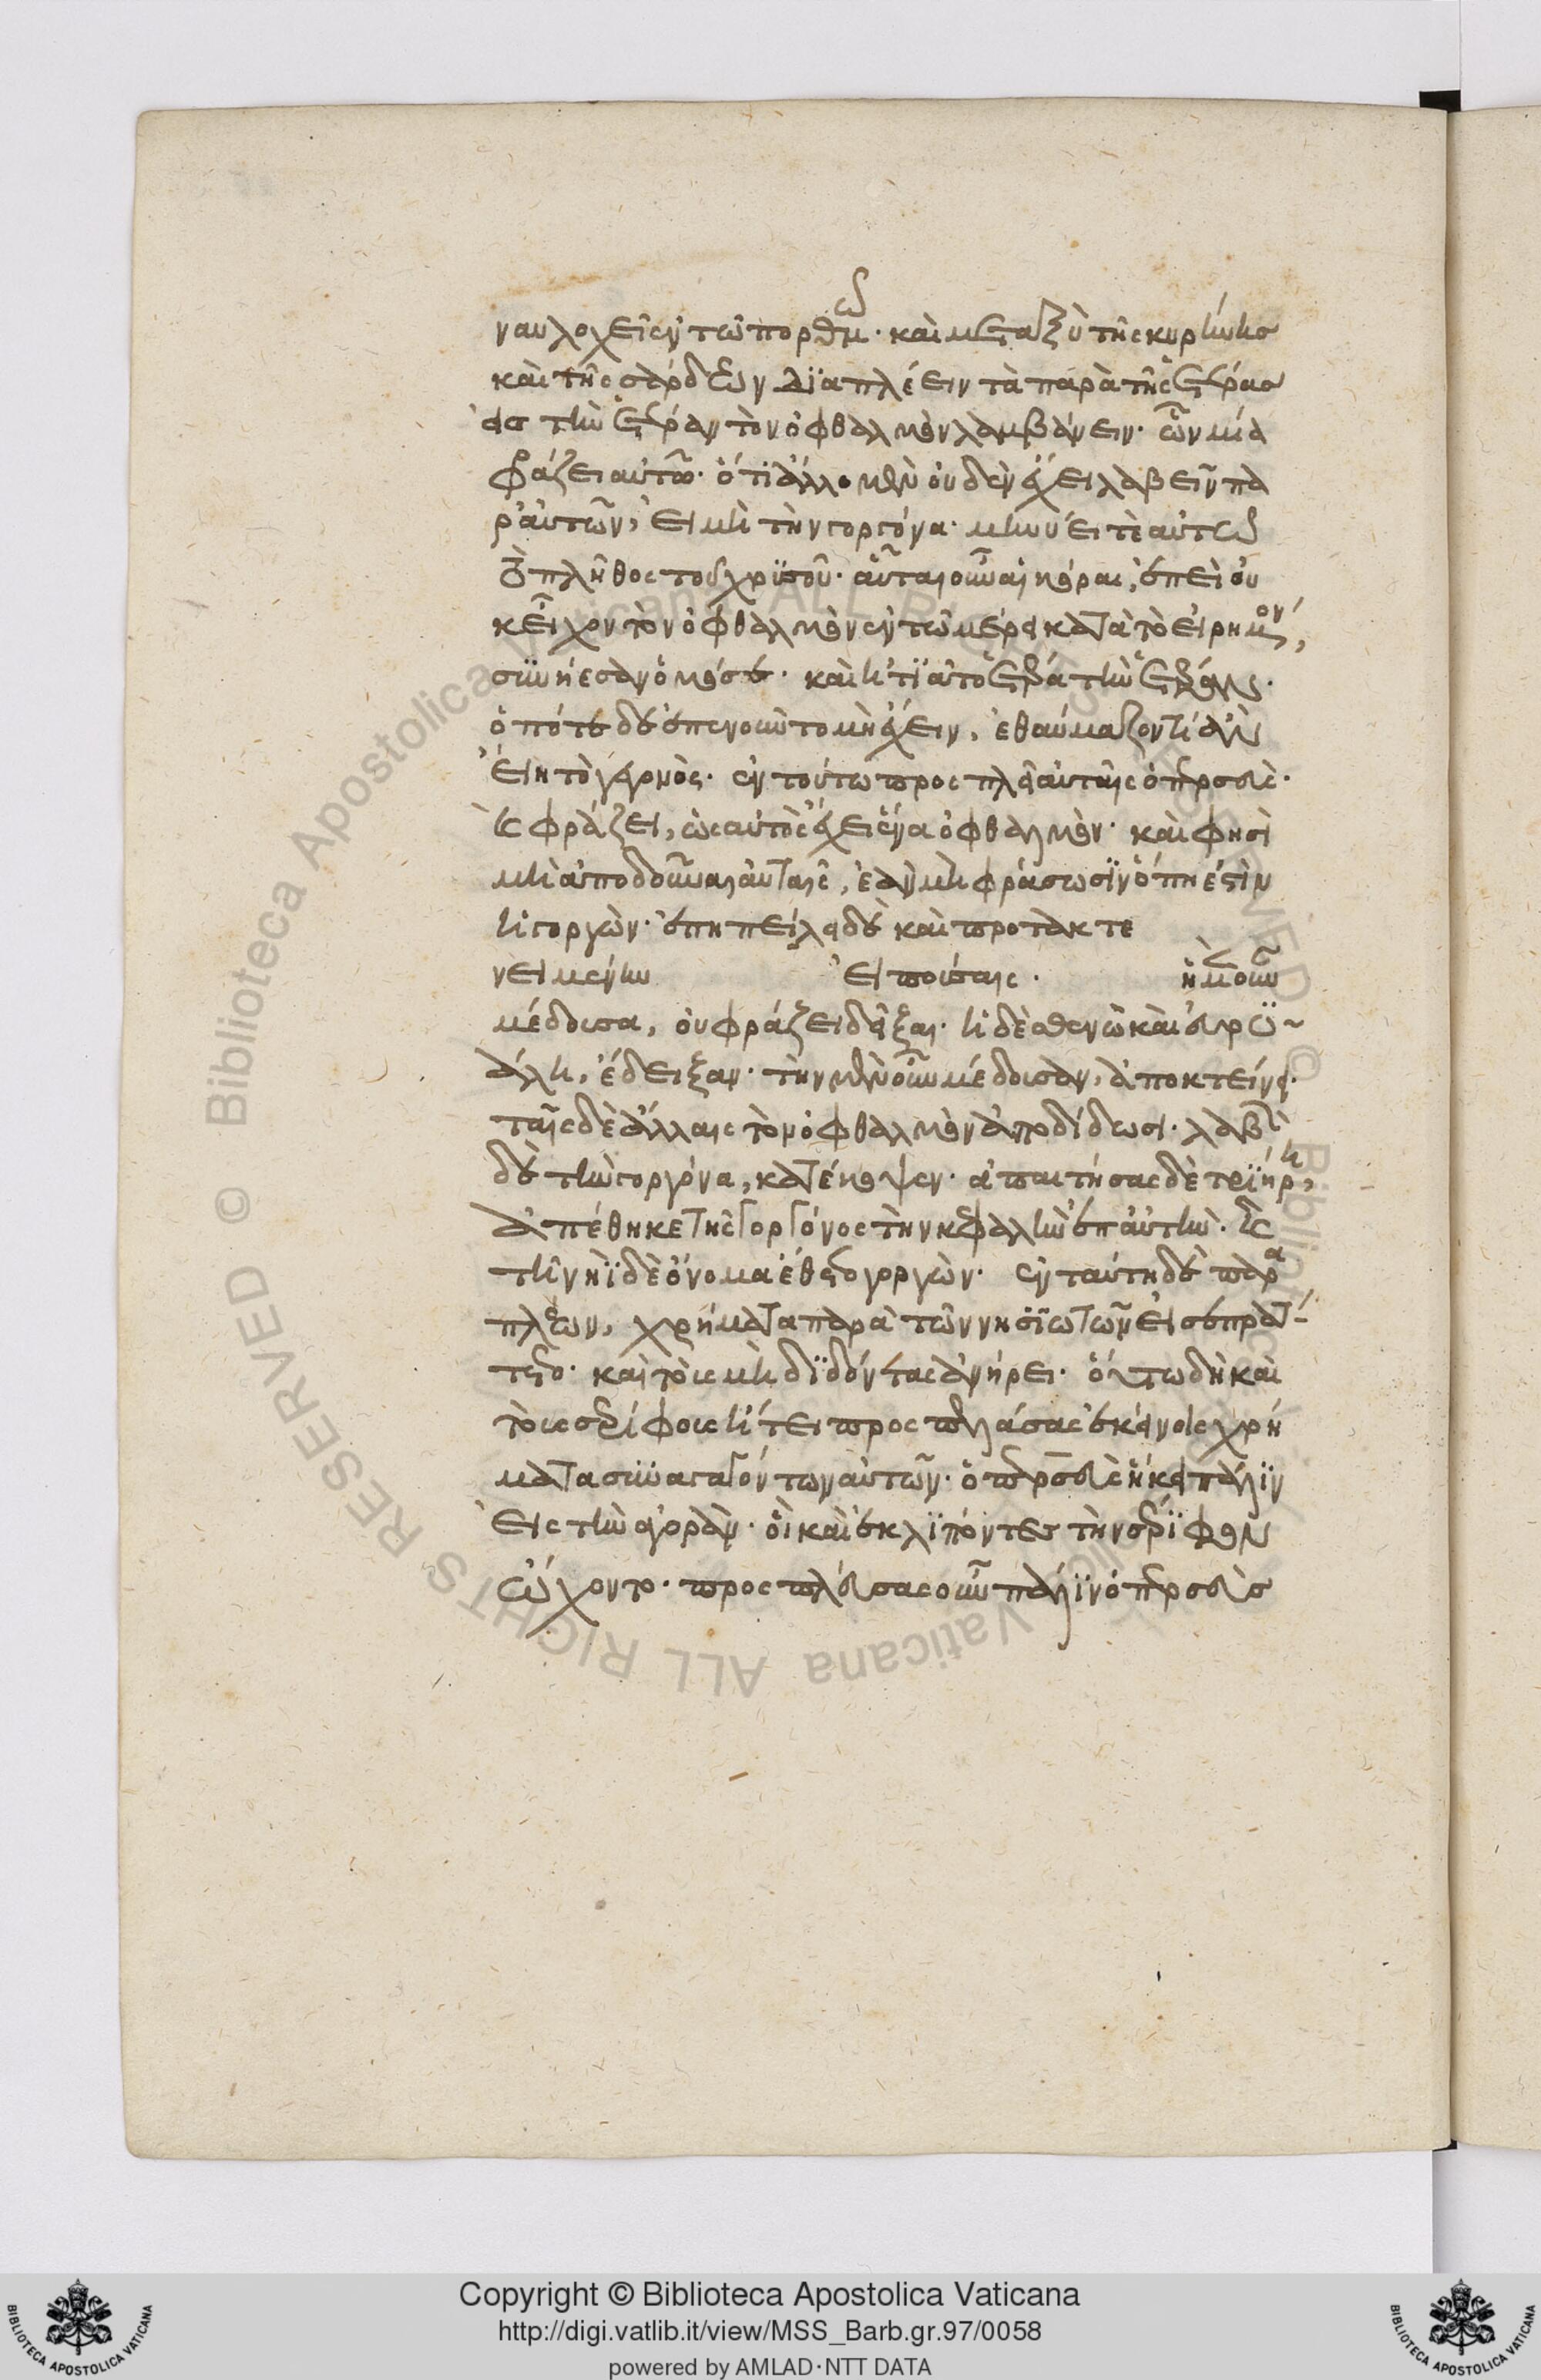 ναυλοχεῖ ἐν τῶ πορθμῶ· καὶ μεταξὺ τῆς κυρήνης
καὶ τῆς σαρδεων διαπλέειν τὰ παρὰ τῆς ἑτέρας
εἰς τὴν ἑτέραν τὸν ὀφθαλμὸν λαμβάνειν· ὧν μία
φράζει αὐτῶ· ὅτι ἄλλο μὲν οὐδὲν ἔχει λαβεῖν πα
ρ' αὐτῶν, εἰ μὴ τὴν γοργόνα· μηνύει τὲ αὐτῶ
τὸ πλῆθος τοῦ χρυσοῦ· αὗται οὖν αἱ κόραι, ἐπεὶ οὐ
κ εἶχον τὸν ὀφθαλμὸν ἐν τῶ μέρει κατὰ τὸ εἰρημένον,
συνήεσαν ὁμόσε· καὶ ἠτιᾶτο ἑτέρα τὴν ἑτέραν·
ὁπότε δὲ ἐπενοιῶτο μὴ ἔχειν, ἐθαύμαζον τί ἂν
εἴη τὸ γεγονὸς· ἐν τούτω προσπλεῖ αὐταῖς ὁ περσεὺς·
καὶ φράζει, ὡς αὐτὸς ἔχει ἕνα ὀφθαλμὸν· καὶ φησὶ
μὴ ἀποδοῦναι αὐταῖς, ἐὰν μὴ φράσωσιν ὅπη ἐστὶν
ἡ γοργὼν· ἐπηπείλει δὲ καὶ προτακτε
νεῖ μενην εἰπούσαις· ἡ μὲν οὖν
μέδουσα, οὐ φράζει δεῖξαι· ἡ δὲ σθενὼ καὶ εὐρυ
άλη, ἔδειξαν· τὴν μὲν οὖν μέδουσαν, ἀποκτείνει·
ταῖς δὲ ἄλλαις τὸν ὀφθαλμὸν ἀποδίδωσι· λαβὼν
δὲ τὴν γοργόνα, κατέκοψεν· ἀπαιτήσας δὲ τριήρη,
ἀπέθηκε τῆς γοργόνος τὴν κεφαλὴν ἐπ' αὐτὴν· καὶ
τῆ νηῒ δὲ ὄνομα ἔθετο γοργὼν· ἐν ταύτη δὲ παρα
πλέων, χρήματα παρὰ τῶν νησιωτῶν εἰσεπράτ-
τετο· καὶ τοὺς μὴ διδόντας ἀνήρει· οὕτω δὴ καὶ
τοὺς σερίφους ἤτει προσπελάσας ἐκείνοις χρή
ματα συναγαγόντων αὐτῶν· ὁ περσεὺς ἧκε πάλιν
εἰς τὴν ἀγορὰν· οἳ καὶ ἐκλιπόντες τὴν σέριφον
ᾤχοντο· προσπλεύσας οὖν πάλιν ὁ περσεὺς
Copyright © Biblioteca Apostolica Vaticana
http://digi.vatlib.it/view/MSS_Barb.gr.97/0058
powered by AMLAD·NTT DATA